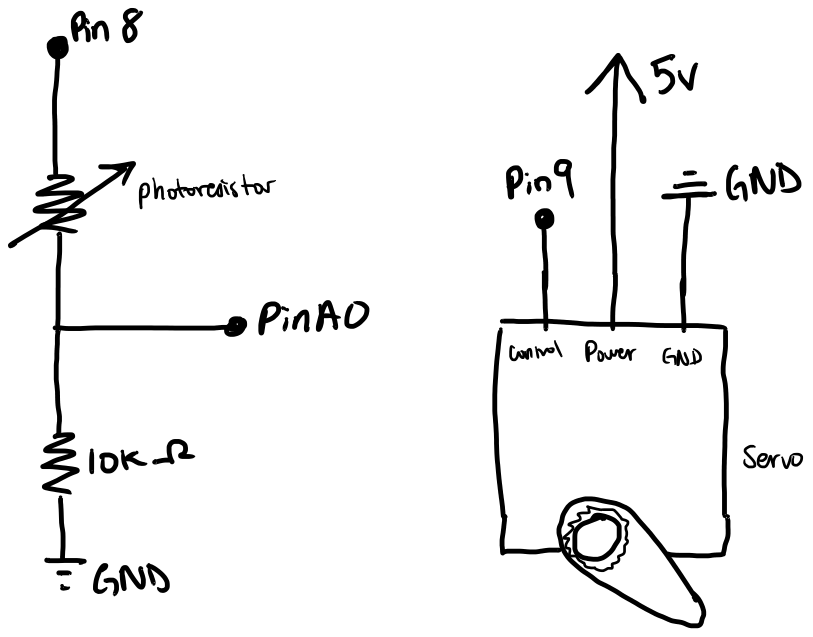 Pin 8
photoresistor
Pin A0
10K Ω
GND
5v
Pin 9
GND
Control
Power
GND
Servo